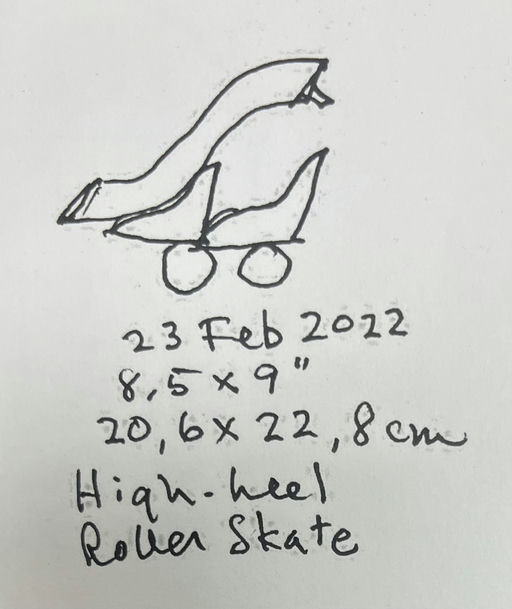 23 Feb 2022
8,5 x 9"
20,6 x 22,8 cm
High-heel
Roller Skate